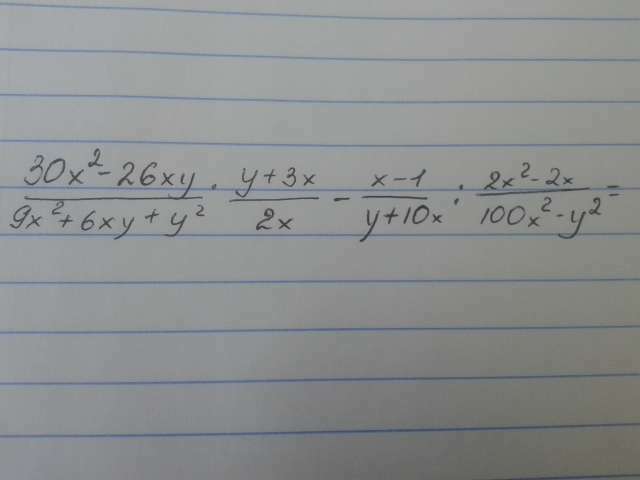 (30x² - 26xy)/(9x² + 6xy + y²) · (y + 3x)/(2x) - (x - 1)/(y + 10x) : (2x² - 2x)/(100x² - y²) =